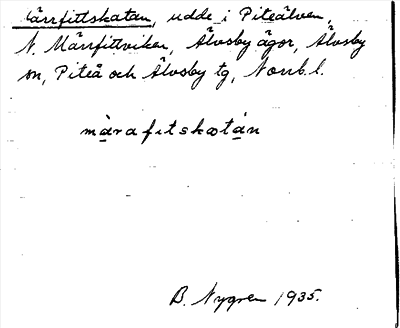 Märrfittskatan, udde i Piteälven,
N. Märrfittviken, Älvsby ägor, Älvsby
sn, Piteå och Älvsby tg, Norrb. l.
màrafitskatán
B. Nygren 1935.